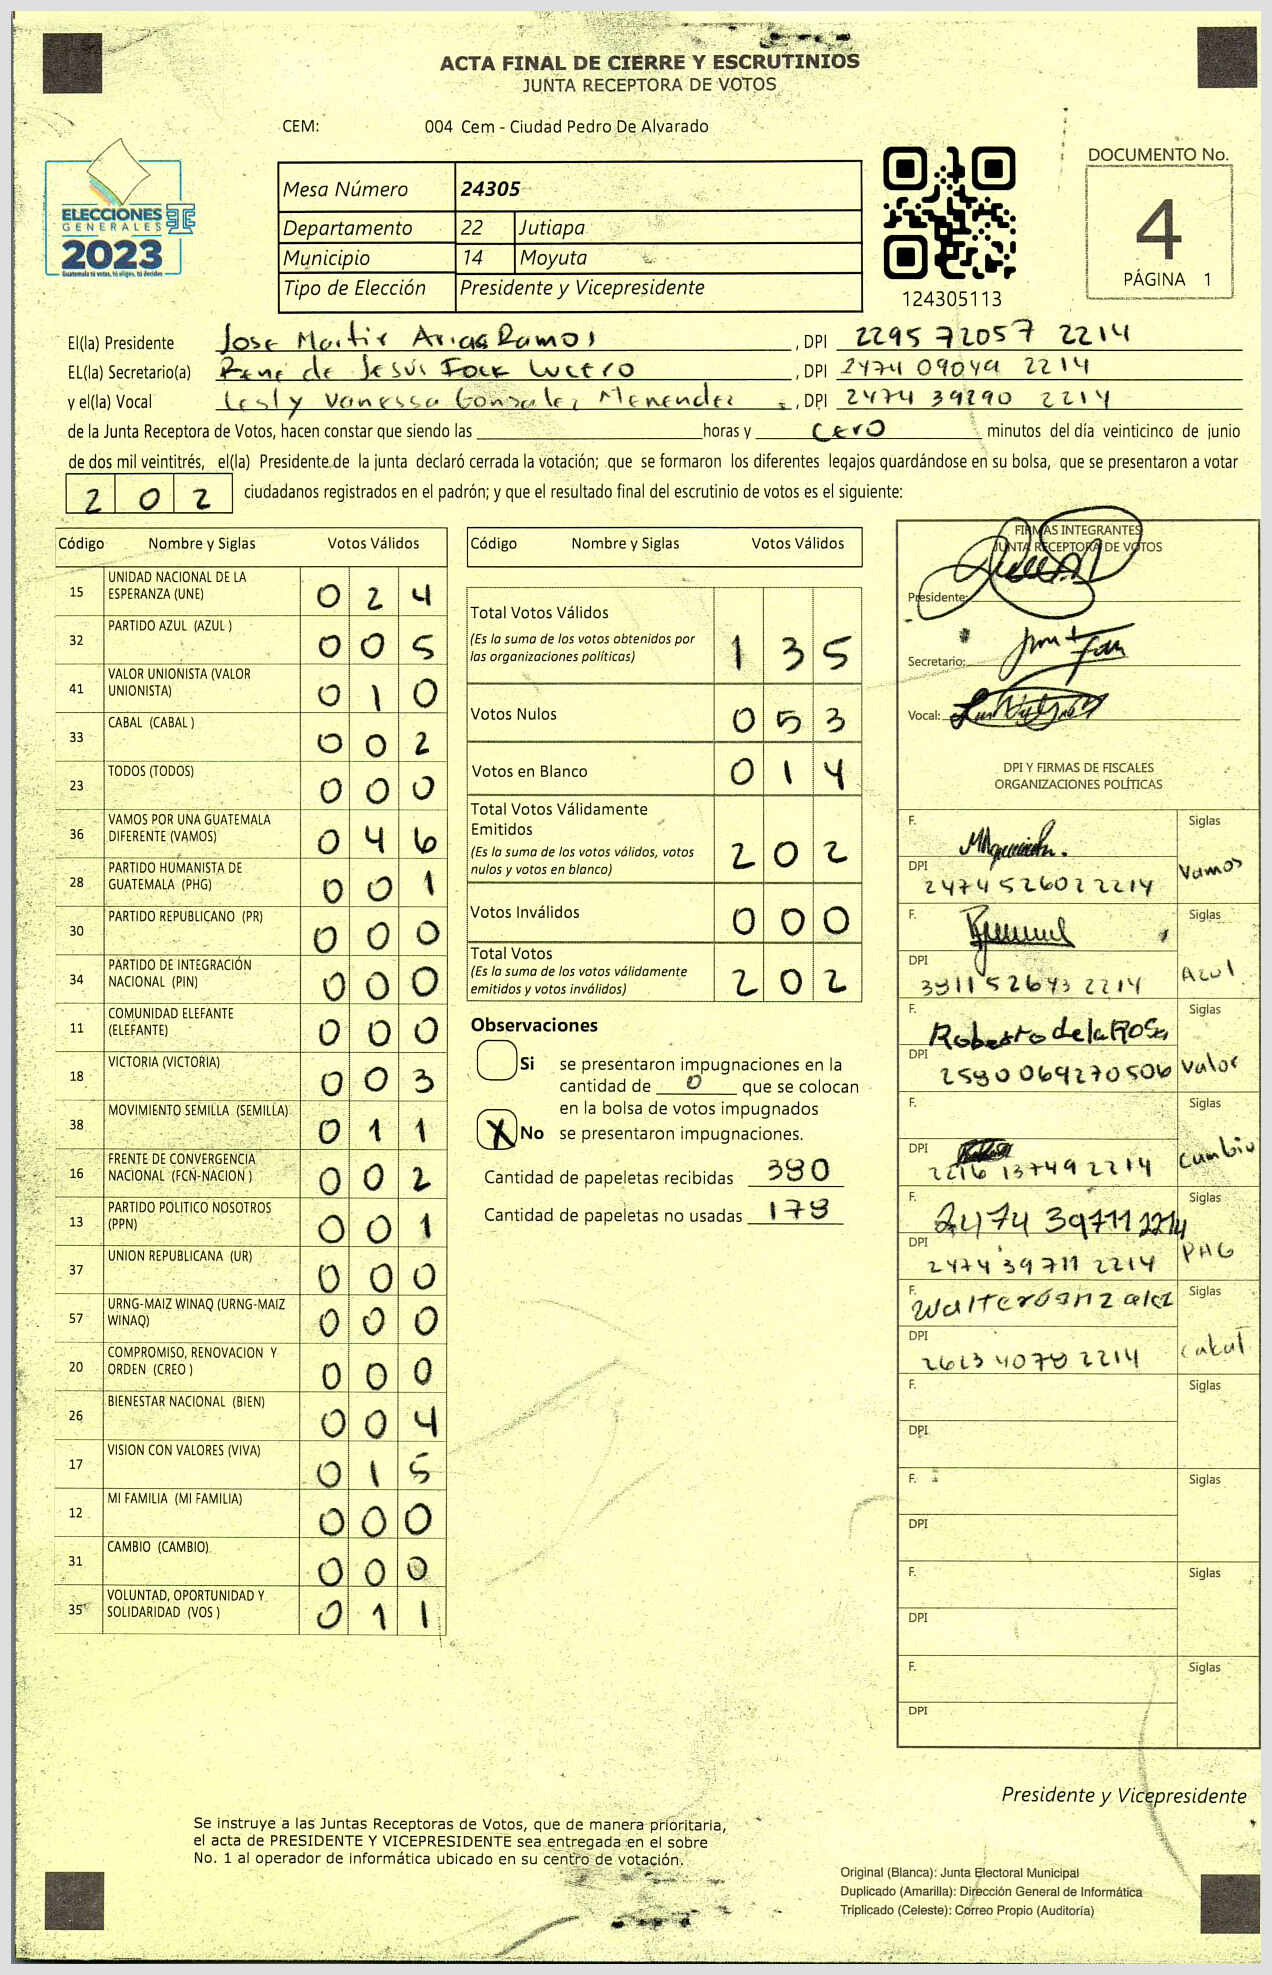 ACTA FINAL DE CIERRE Y ESCRUTINIOS
JUNTA RECEPTORA DE VOTOS
CEM: 004 Cem - Ciudad Pedro De Alvarado
ELECCIONES
GENERALES
2023
Guatemala tú votas, tú eliges, tú decides
Mesa Número 24305
Departamento 22 Jutiapa
Municipio 14 Moyuta
Tipo de Elección Presidente y Vicepresidente
124305113
DOCUMENTO No.
4
PÁGINA 1
El(la) Presidente Jose Martir Arias Ramos, DPI 2295 72057 2214
EL(la) Secretario(a) Rene de Jesús Lucero, DPI 2474 09049 2214
y el(la) Vocal Lesly Vanessa Gonzalez Menendez, DPI 2474 39290 2214
de la Junta Receptora de Votos, hacen constar que siendo las ____ horas y cero minutos del día veinticinco de junio
de dos mil veintitrés, el(la) Presidente de la junta declaró cerrada la votación; que se formaron los diferentes legajos quardándose en su bolsa, que se presentaron a votar
202 ciudadanos registrados en el padrón; y que el resultado final del escrutinio de votos es el siguiente:
Código Nombre y Siglas Votos Válidos
15 UNIDAD NACIONAL DE LA ESPERANZA (UNE) 024
32 PARTIDO AZUL (AZUL ) 005
41 VALOR UNIONISTA (VALOR UNIONISTA) 010
33 CABAL (CABAL ) 002
23 TODOS (TODOS) 000
36 VAMOS POR UNA GUATEMALA DIFERENTE (VAMOS) 046
28 PARTIDO HUMANISTA DE GUATEMALA (PHG) 001
30 PARTIDO REPUBLICANO (PR) 000
34 PARTIDO DE INTEGRACIÓN NACIONAL (PIN) 000
11 COMUNIDAD ELEFANTE (ELEFANTE) 000
18 VICTORIA (VICTORIA) 003
38 MOVIMIENTO SEMILLA (SEMILLA) 011
16 FRENTE DE CONVERGENCIA NACIONAL (FCN-NACION ) 002
13 PARTIDO POLITICO NOSOTROS (PPN) 001
37 UNION REPUBLICANA (UR) 000
57 URNG-MAIZ WINAQ (URNG-MAIZ WINAQ) 000
20 COMPROMISO, RENOVACION Y ORDEN (CREO ) 000
26 BIENESTAR NACIONAL (BIEN) 004
17 VISION CON VALORES (VIVA) 015
12 MI FAMILIA (MI FAMILIA) 000
31 CAMBIO (CAMBIO) 000
35 VOLUNTAD, OPORTUNIDAD Y SOLIDARIDAD (VOS ) 011
Código Nombre y Siglas Votos Válidos
Total Votos Válidos
(Es la suma de los votos obtenidos por las organizaciones políticas) 135
Votos Nulos 053
Votos en Blanco 014
Total Votos Válidamente Emitidos
(Es la suma de los votos válidos, votos nulos y votos en blanco) 202
Votos Inválidos 000
Total Votos
(Es la suma de los votos válidamente emitidos y votos inválidos) 202
Observaciones
Si se presentaron impugnaciones en la
cantidad de 0 que se colocan
en la bolsa de votos impugnados
X No se presentaron impugnaciones.
Cantidad de papeletas recibidas 380
Cantidad de papeletas no usadas 178
FIRMAS INTEGRANTES
JUNTA RECEPTORA DE VOTOS
Presidente:
Secretario:
Vocal:
DPI Y FIRMAS DE FISCALES
ORGANIZACIONES POLÍTICAS
F. Siglas
DPI 2474 52602 2214 Vamos
F. Siglas
DPI 3911 52643 2214 Azul
F. Roberto de la Rosa Siglas
DPI 2580 069270506 Valor
F. Siglas
DPI 2216 13749 2214 Cambio
F. 2474 39711 2214 Siglas
DPI 2474 39711 2214 PHG
F. Walter Gonzalez Siglas
DPI 2623 4078 2214 Cabal
F. Siglas
DPI
F. Siglas
DPI
F. Siglas
DPI
F. Siglas
DPI
Presidente y Vicepresidente
Se instruye a las Juntas Receptoras de Votos, que de manera prioritaria,
el acta de PRESIDENTE Y VICEPRESIDENTE sea entregada en el sobre
No. 1 al operador de informática ubicado en su centro de votación.
Original (Blanca): Junta Electoral Municipal
Duplicado (Amarilla): Dirección General de Informática
Triplicado (Celeste): Correo Propio (Auditoría)